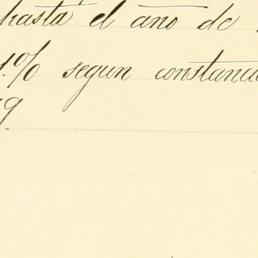 hasta el año de
1.% segun constanci
9